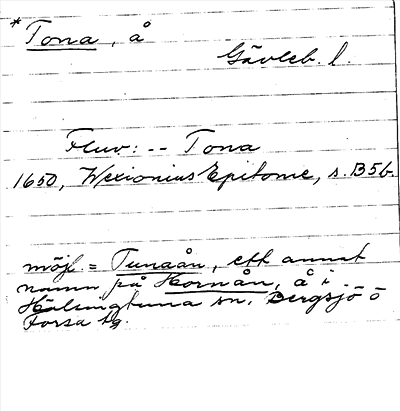 * Tona, å
Gävleb. l.
Fluv: -- Tona
1650, Wexionius Epitome, s. B5b.
möjl. = Tunaån, ett annat
namn på Hornån, å i
Hälsingtuna sn. Bergsjö o
Forsa tg.